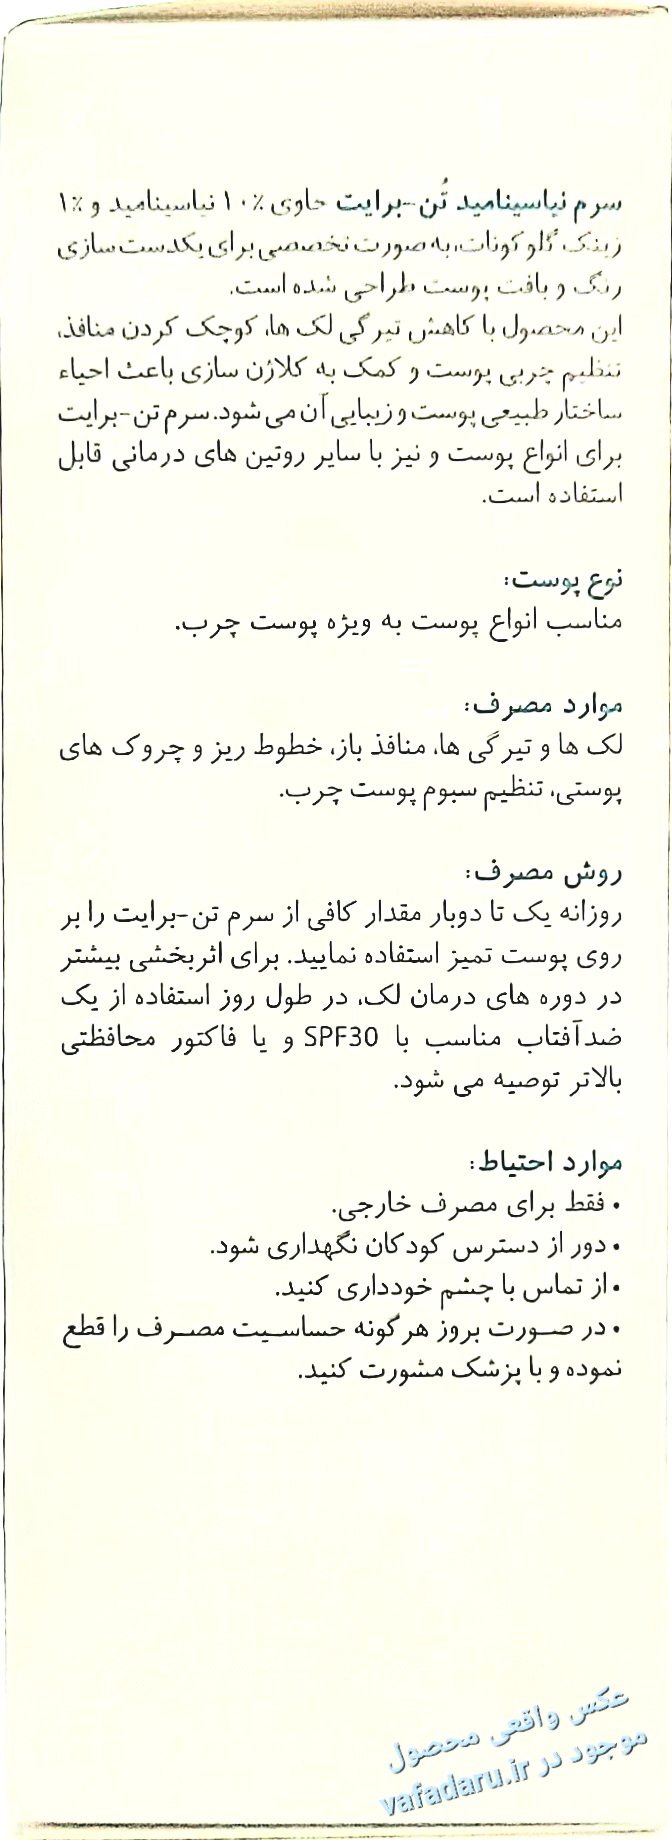 سرم نیاسینامید تُن-برایت حاوی ۱۰٪ نیاسینامید و ۱٪
زینک گلوکونات، به صورت تخصصی برای یکدست سازی
رنگ و بافت پوست طراحی شده است.
این محصول با کاهش تیرگی لک ها، کوچک کردن منافذ،
تنظیم چربی پوست و کمک به کلاژن سازی باعث احیاء
ساختار طبیعی پوست و زیبایی آن می شود. سرم تن-برایت
برای انواع پوست و نیز با سایر روتین های درمانی قابل
استفاده است.
نوع پوست:
مناسب انواع پوست به ویژه پوست چرب.
موارد مصرف:
لک ها و تیرگی ها، منافذ باز، خطوط ریز و چروک های
پوستی، تنظیم سبوم پوست چرب.
روش مصرف:
روزانه یک تا دوبار مقدار کافی از سرم تن-برایت را بر
روی پوست تمیز استفاده نمایید. برای اثربخشی بیشتر
در دوره های درمان لک، در طول روز استفاده از یک
ضدآفتاب مناسب با SPF30 و یا فاکتور محافظتی
بالاتر توصیه می شود.
موارد احتیاط:
• فقط برای مصرف خارجی.
• دور از دسترس کودکان نگهداری شود.
• از تماس با چشم خودداری کنید.
• در صورت بروز هرگونه حساسیت مصرف را قطع
نموده و با پزشک مشورت کنید.
عکس واقعی محصول
موجود در vafadaru.ir